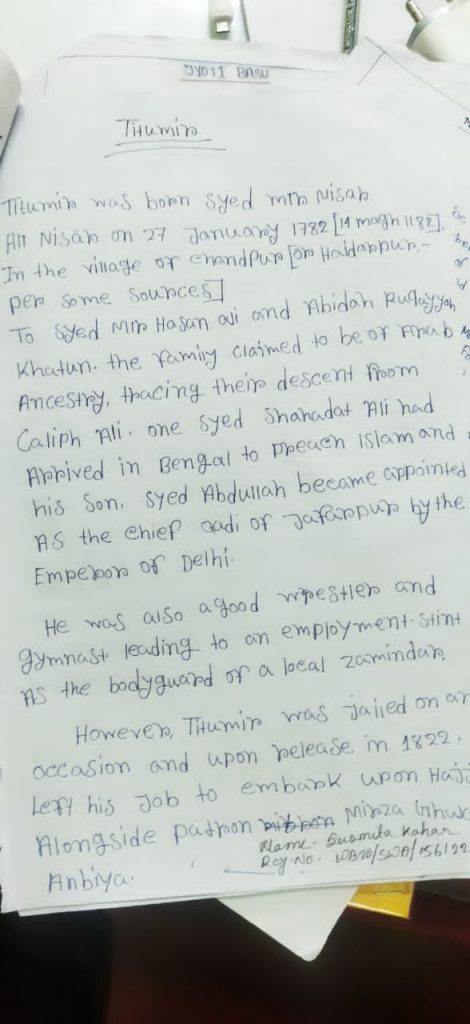 JYOTI BASU
Titumir
Titumir was born Syed mir Nisab
Ali Nisar on 27 January 1782 [14 magh 1182],
In the village of Chandpur [or Haidarpur,-
per some sources]
To Syed Mir Hasan Ali and Abidah Ruqayyah
Khatun. the family claimed to be of Arab
Ancestry, tracing their descent from
Caliph Ali. one Syed Shahadat Ali had
Arrived in Bengal to preach Islam and
his Son, Syed Abdullah became appointed
AS the chief qadi of Jafarpur by the
Emperor of Delhi.
He was also a good wrestler and
gymnast leading to an employment-stint
AS the bodyguard of a local zamindar.
However, Titumir was jailed on an
occasion and upon release, in 1822.
Left his Job to embark upon Hajj
Alongside patron Mirza Ghul
Anbiya.
Name- Susmita Kahar
Reg-No- WB20/SWA/156122